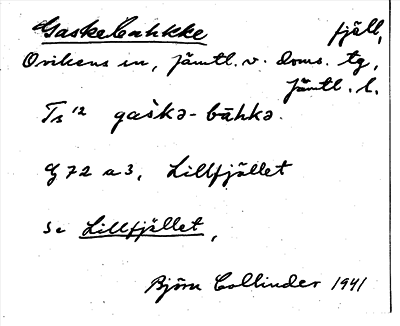 Gaskebahkke fjäll,
Ovikens sn, Jämtl. v. doms. tg,
Jämtl. l.
Ts 12 gaška-bāhka.
G 72 a 3, Lillfjället
se Lillfjället,
Björn Collinder 1941